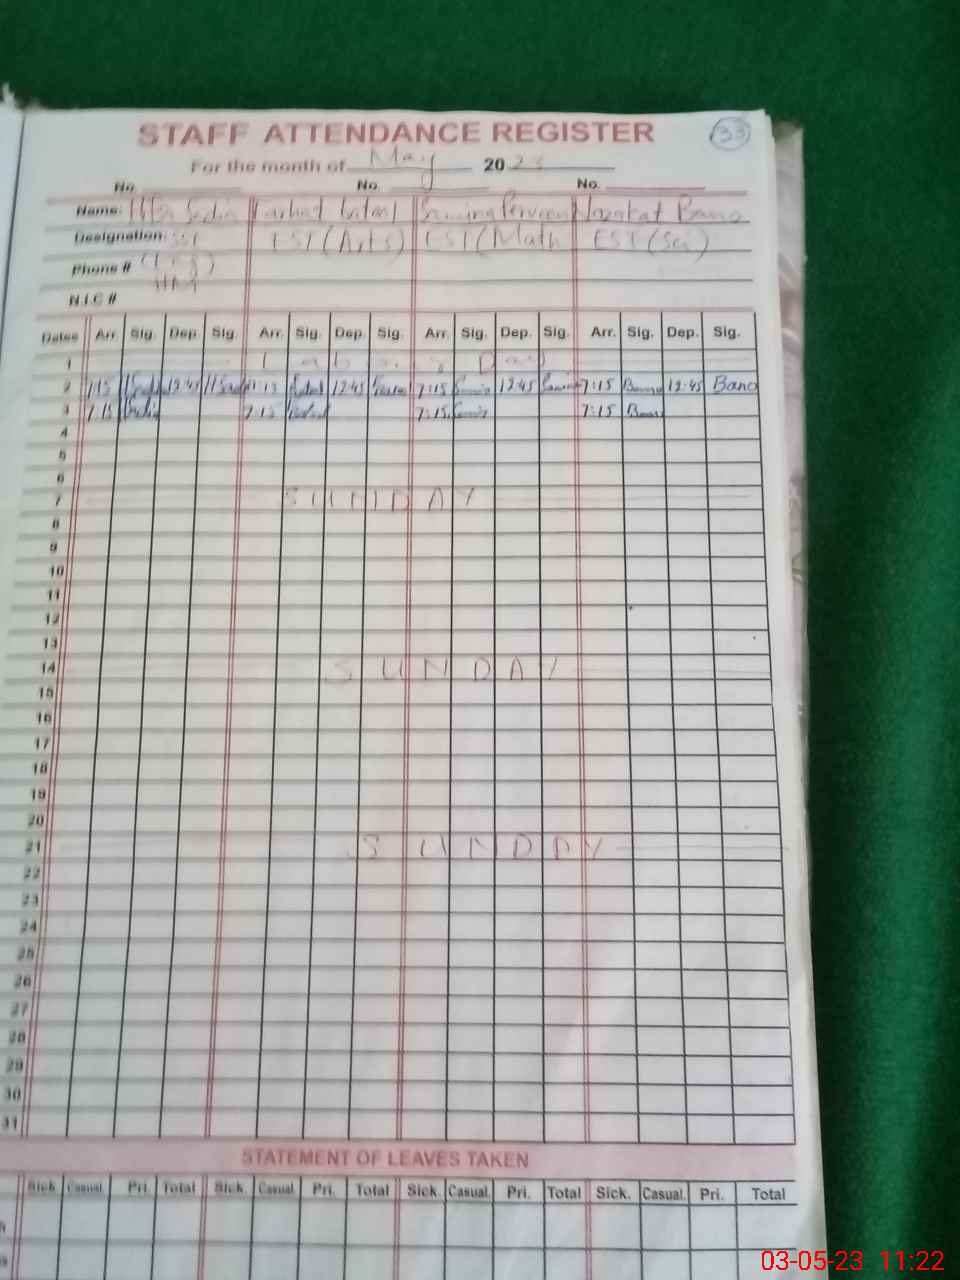 33
STAFF ATTENDANCE REGISTER
For the month of May 2023
No. No. No.
Name: Sadia Farhat Batool Samina Perveen Nazakat Bano
Designation: SST EST (Arts) EST (Math EST (Sci)
Phone #
HM
N.I.C #
Dates Arr. Sig. Dep. Sig. Arr. Sig. Dep. Sig. Arr. Sig. Dep. Sig. Arr. Sig. Dep. Sig.
1 Labour Day
2 7:15 Sadia 12:45 Sadia 7:15 Batool 12:45 7:15 Samina 12:45 Samina 7:15 Bano 12:45 Bano
3 7:15 Sadia 7:15 Batool 7:15 Samina 7:15 Bano
4
5
6
7 SUNDAY
8
9
10
11
12
13
14 SUNDAY
15
16
17
18
19
20
21 SUNDAY
22
23
24
25
26
27
28
29
30
31
STATEMENT OF LEAVES TAKEN
Sick. Casual. Pri. Total Sick. Casual. Pri. Total Sick. Casual. Pri. Total Sick. Casual. Pri. Total
03-05-23 11:22